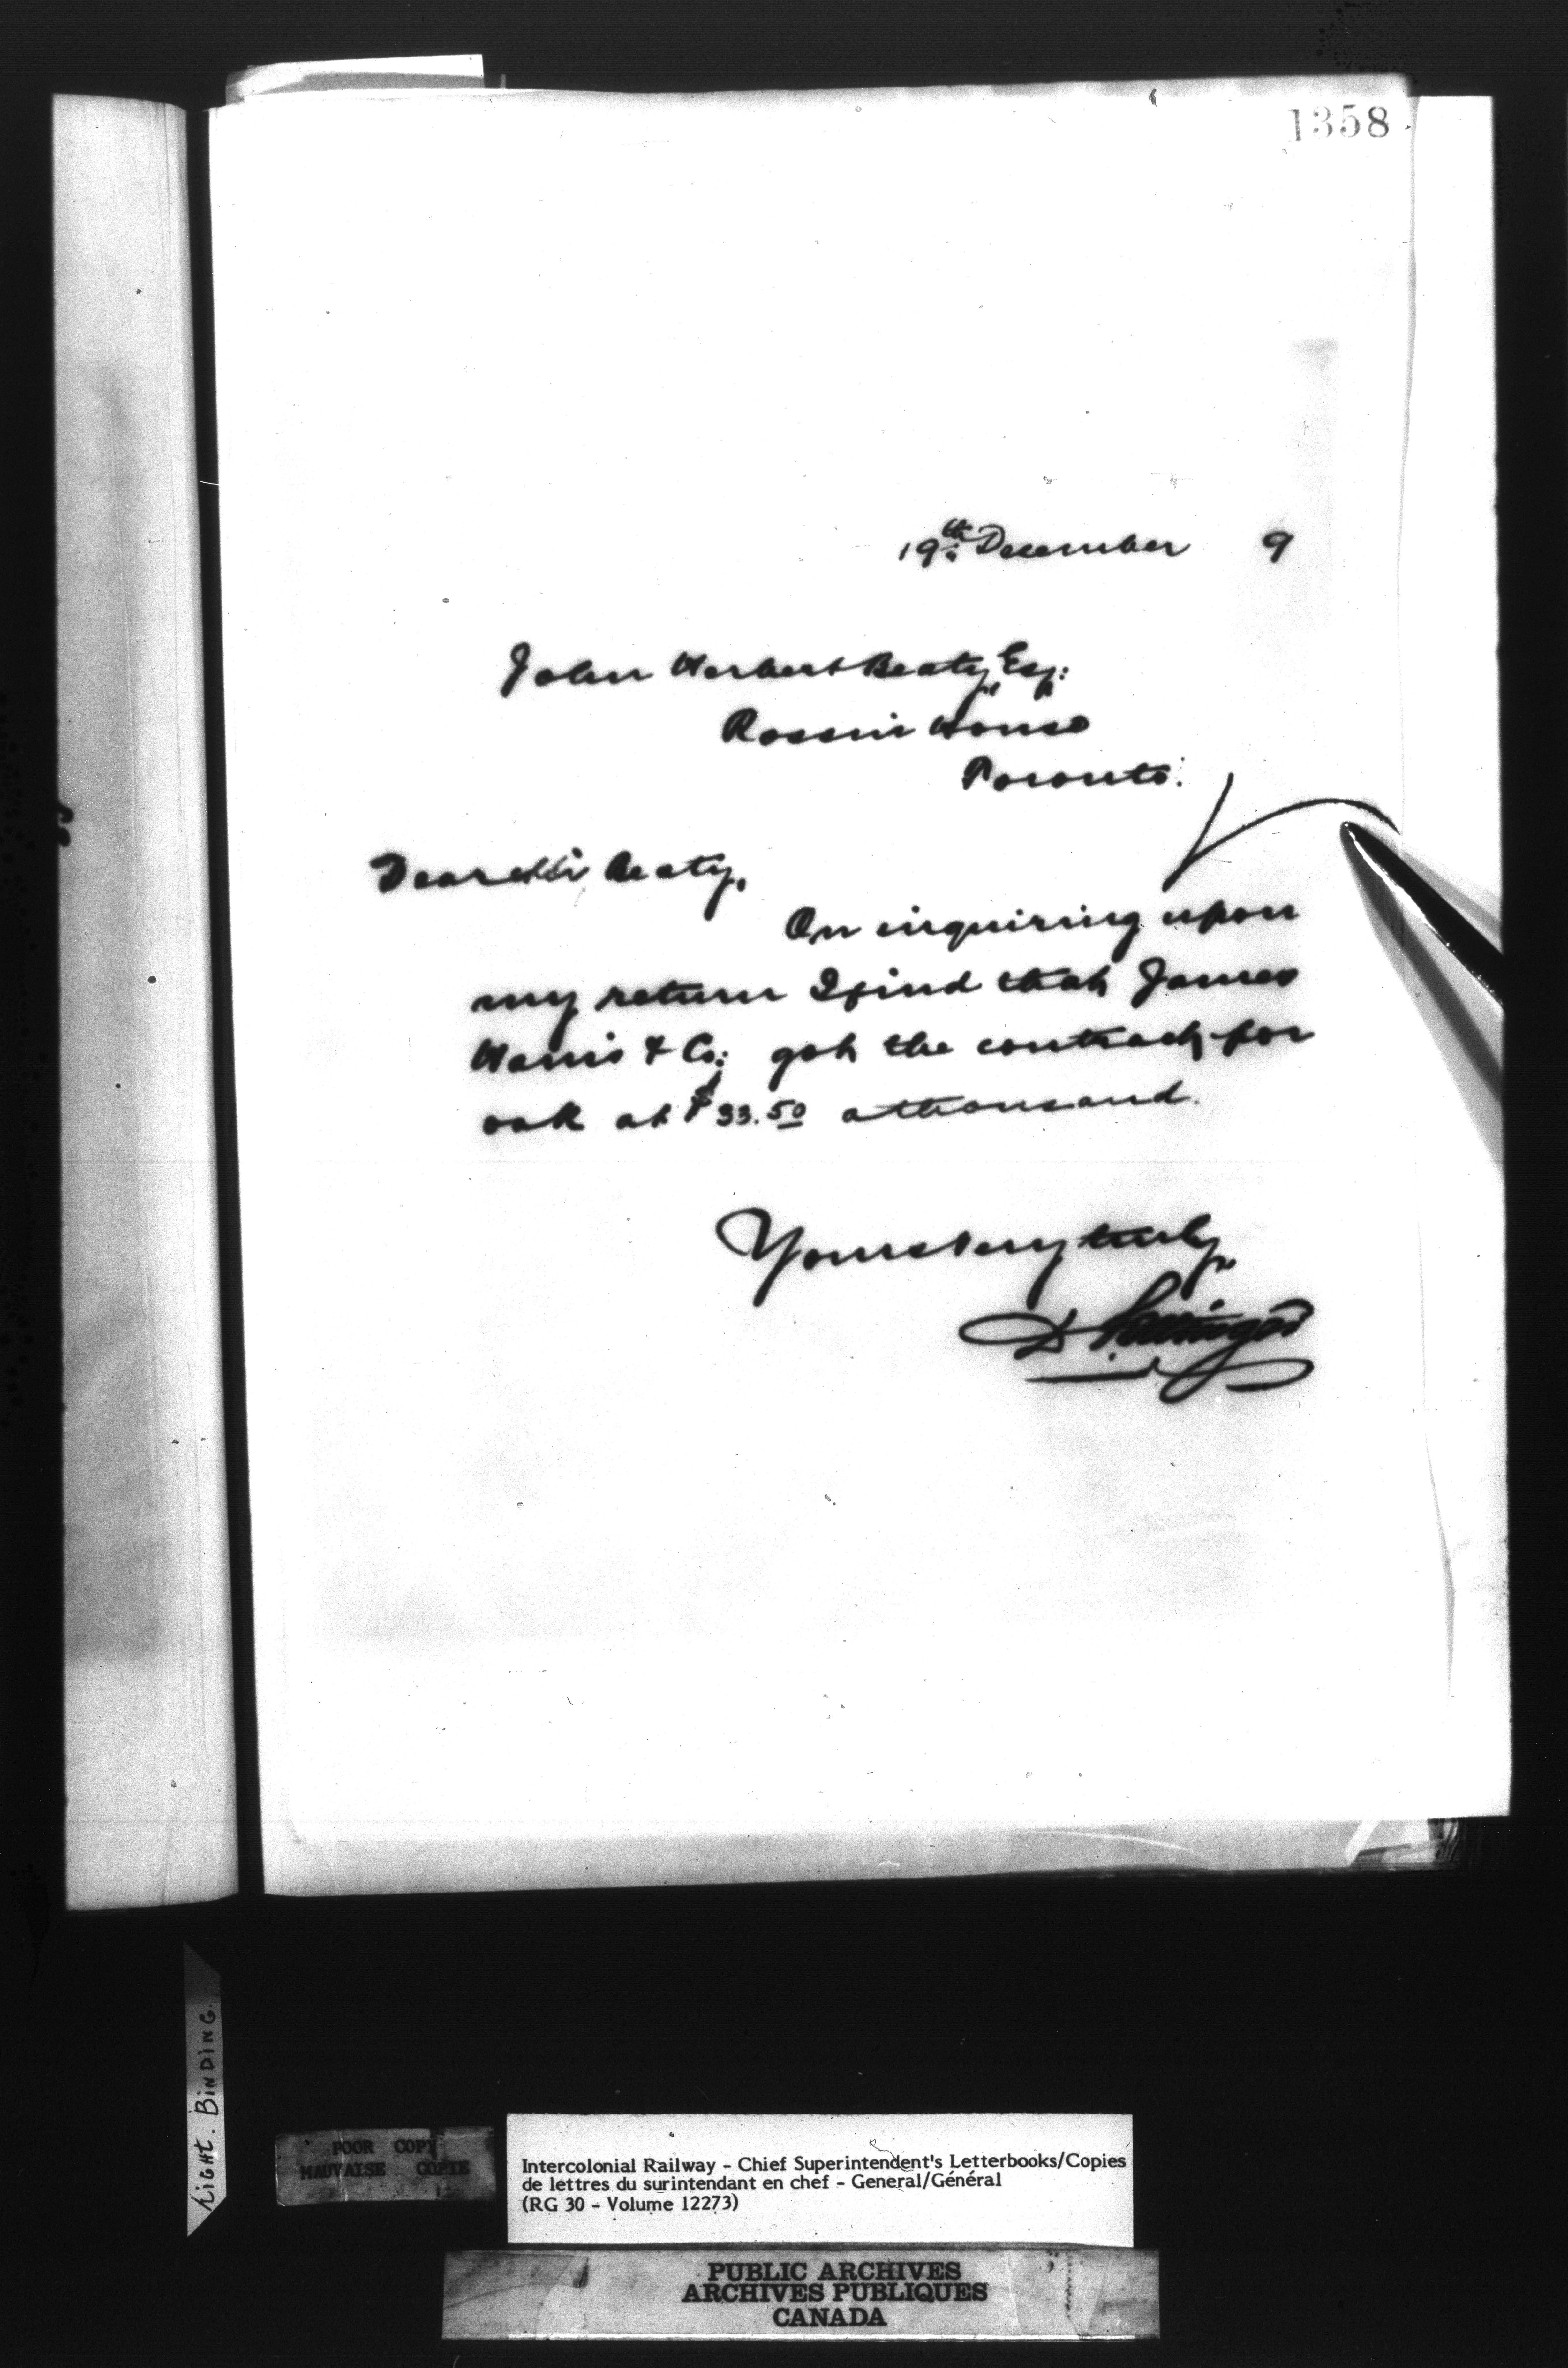 1358
19th: December 9
John Herbert Beaty, Esq:
Rossin House
Toronto:
Dear Mr Beaty,
On inquiring upon
my return I find that James
Harris & Co: got the contract for
oak at $33.50 a thousand.
Yours very truly,
D Pottinger
LIGHT. BINDING.
POOR COPY
MAUVAISE COPIE
Intercolonial Railway - Chief Superintendent's Letterbooks/Copies
de lettres du surintendant en chef - General/Général
(RG 30 - Volume 12273)
PUBLIC ARCHIVES
ARCHIVES PUBLIQUES
CANADA